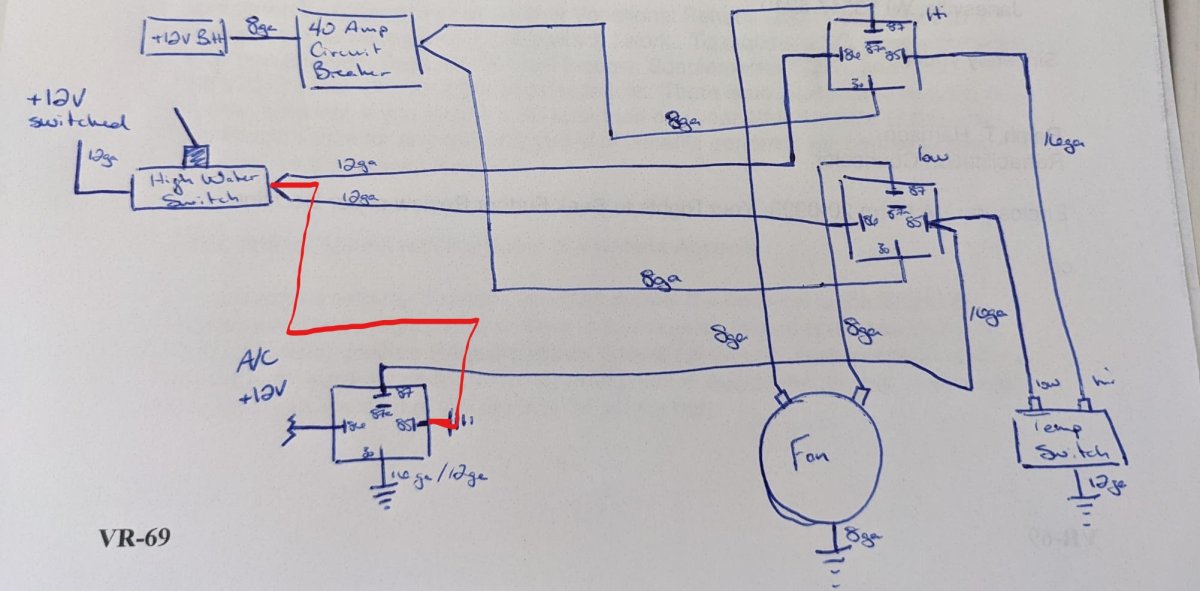 +12V BAT
8ga
40 Amp
Circuit
Breaker
Hi
87
87a
86
85
30
+12V
switched
12ga
High Water
Switch
12ga
12ga
8ga
16ga
low
87
87a
86
85
30
8ga
16ga
8ga
8ga
A/C
+12V
87
87a
86
85
30
16ga/12ga
Fan
8ga
low
hi
Temp
Switch
12ga
VR-69